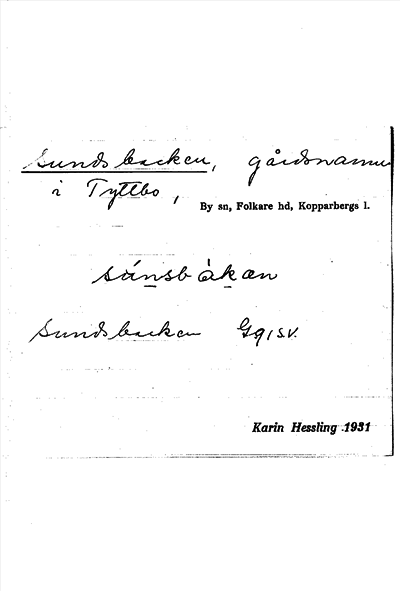 Sundsbacken, gårdsnamn
i Tyttbo,
By sn, Folkare hd, Kopparbergs l.
sánsbàkan
Sundsbacken
Karin Hessling 1931